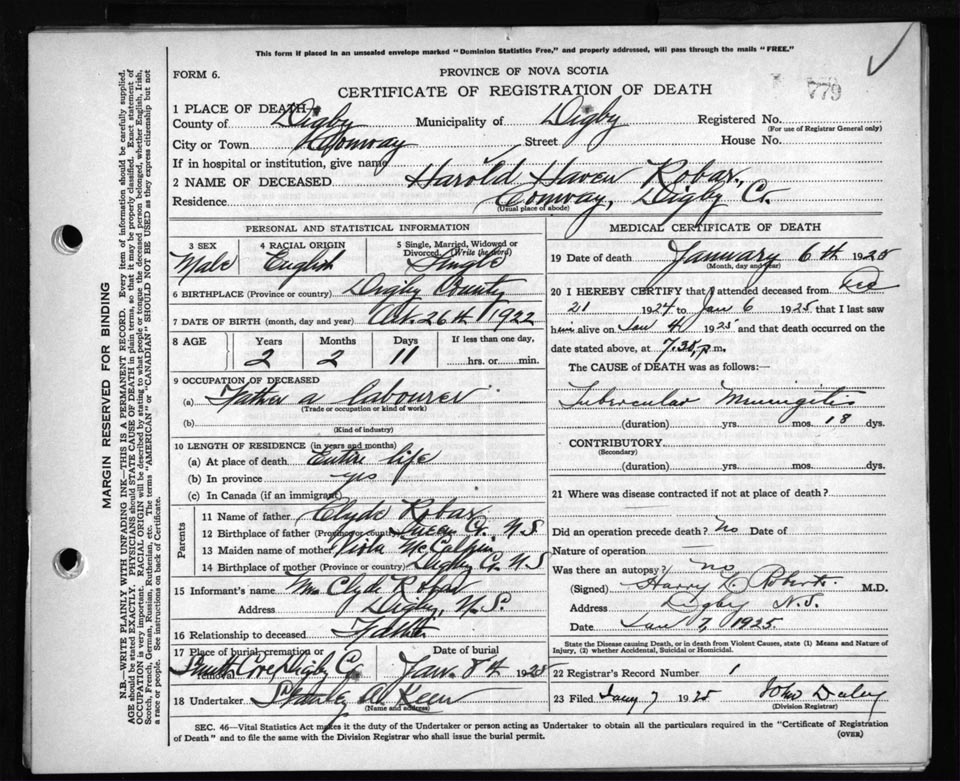 This form if placed in an unsealed envelope marked "Dominion Statistics Free," and properly addressed, will pass through the mails "FREE."
FORM 6.
PROVINCE OF NOVA SCOTIA
779
CERTIFICATE OF REGISTRATION OF DEATH
1 PLACE OF DEATH
County of Digby Municipality of Digby Registered No.
(For use of Registrar General only)
City or Town Conway Street House No.
If in hospital or institution, give name
2 NAME OF DECEASED Harold Haven Robar,
Residence Conway, Digby C.
(Usual place of abode)
PERSONAL AND STATISTICAL INFORMATION
3 SEX 4 RACIAL ORIGIN 5 Single, Married, Widowed or Divorced (Write the word)
Male English Single
6 BIRTHPLACE (Province or country) Digby County
7 DATE OF BIRTH (month, day and year) Oct. 26th 1922
8 AGE Years Months Days If less than one day,
2 2 11 hrs. or min.
9 OCCUPATION OF DECEASED
(a) Father a labourer
(Trade or occupation or kind of work)
(b)
(Kind of industry)
10 LENGTH OF RESIDENCE (in years and months)
(a) At place of death Entire life
(b) In province yes
(c) In Canada (if an immigrant)
Parents
11 Name of father Clyde Robar
12 Birthplace of father (Province or country) Queen Co. N S
13 Maiden name of mother Viola McCalpin
14 Birthplace of mother (Province or country) Digby Co. N S
15 Informant's name Clyde Robar
Address Digby, N.S.
16 Relationship to deceased Father
17 Place of burial, cremation or removal Date of burial
Smith Cove Digby Co Jan. 8th 1925
18 Undertaker Stanley A. Keen
(Name and address)
MEDICAL CERTIFICATE OF DEATH
19 Date of death January 6th 1925
(Month, day and year)
20 I HEREBY CERTIFY that I attended deceased from Dec
21 1924 to Jan 6 1925 that I last saw
him alive on Jan 4 1925 and that death occurred on the
date stated above, at 7.30 p.m.
The CAUSE of DEATH was as follows:—
Tubercular Meningitis
(duration) yrs. mos. 18 dys.
CONTRIBUTORY
(Secondary)
(duration) yrs. mos. dys.
21 Where was disease contracted if not at place of death?
Did an operation precede death? no Date of
Nature of operation —
Was there an autopsy? no
(Signed) Harry L. Roberts M.D.
Address Digby N.S.
Date Jan 7, 1925
State the Disease causing Death, or in Death from Violent Causes, state (1) Means and Nature of Injury, (2) whether Accidental, Suicidal or Homicidal.
22 Registrar's Record Number 1
23 Filed Jany 7 1925 John Daley
(Division Registrar)
SEC. 46—Vital Statistics Act makes it the duty of the Undertaker or person acting as Undertaker to obtain all the particulars required in the "Certificate of Registration
of Death" and to file the same with the Division Registrar who shall issue the burial permit.
(OVER)
MARGIN RESERVED FOR BINDING
N.B.—WRITE PLAINLY WITH UNFADING INK—THIS IS A PERMANENT RECORD. Every item of information should be carefully supplied.
AGE should be stated EXACTLY. PHYSICIANS should STATE CAUSE OF DEATH in plain terms, so that it may be properly classified. Exact statement of
OCCUPATION is very important. RACIAL ORIGIN will be described by stating to what people or tongue the deceased person belonged, whether English, Irish,
Scotch, French, German, Russian, Ruthenian, etc. The terms "AMERICAN" or "CANADIAN" SHOULD NOT BE USED as they express citizenship but not
a race or people. See instructions on back of Certificate.